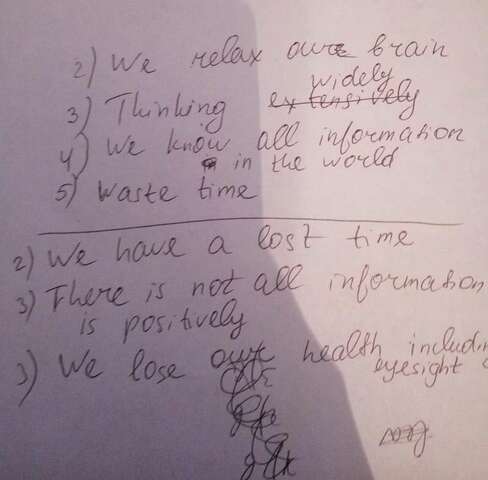 2) We relax our brain
widely
3) Thinking extensively
4) We know all information
in the world
5) Waste time
2) We have a lost time
3) There is not all information
is positively
3) We lose our health includin
eyesight